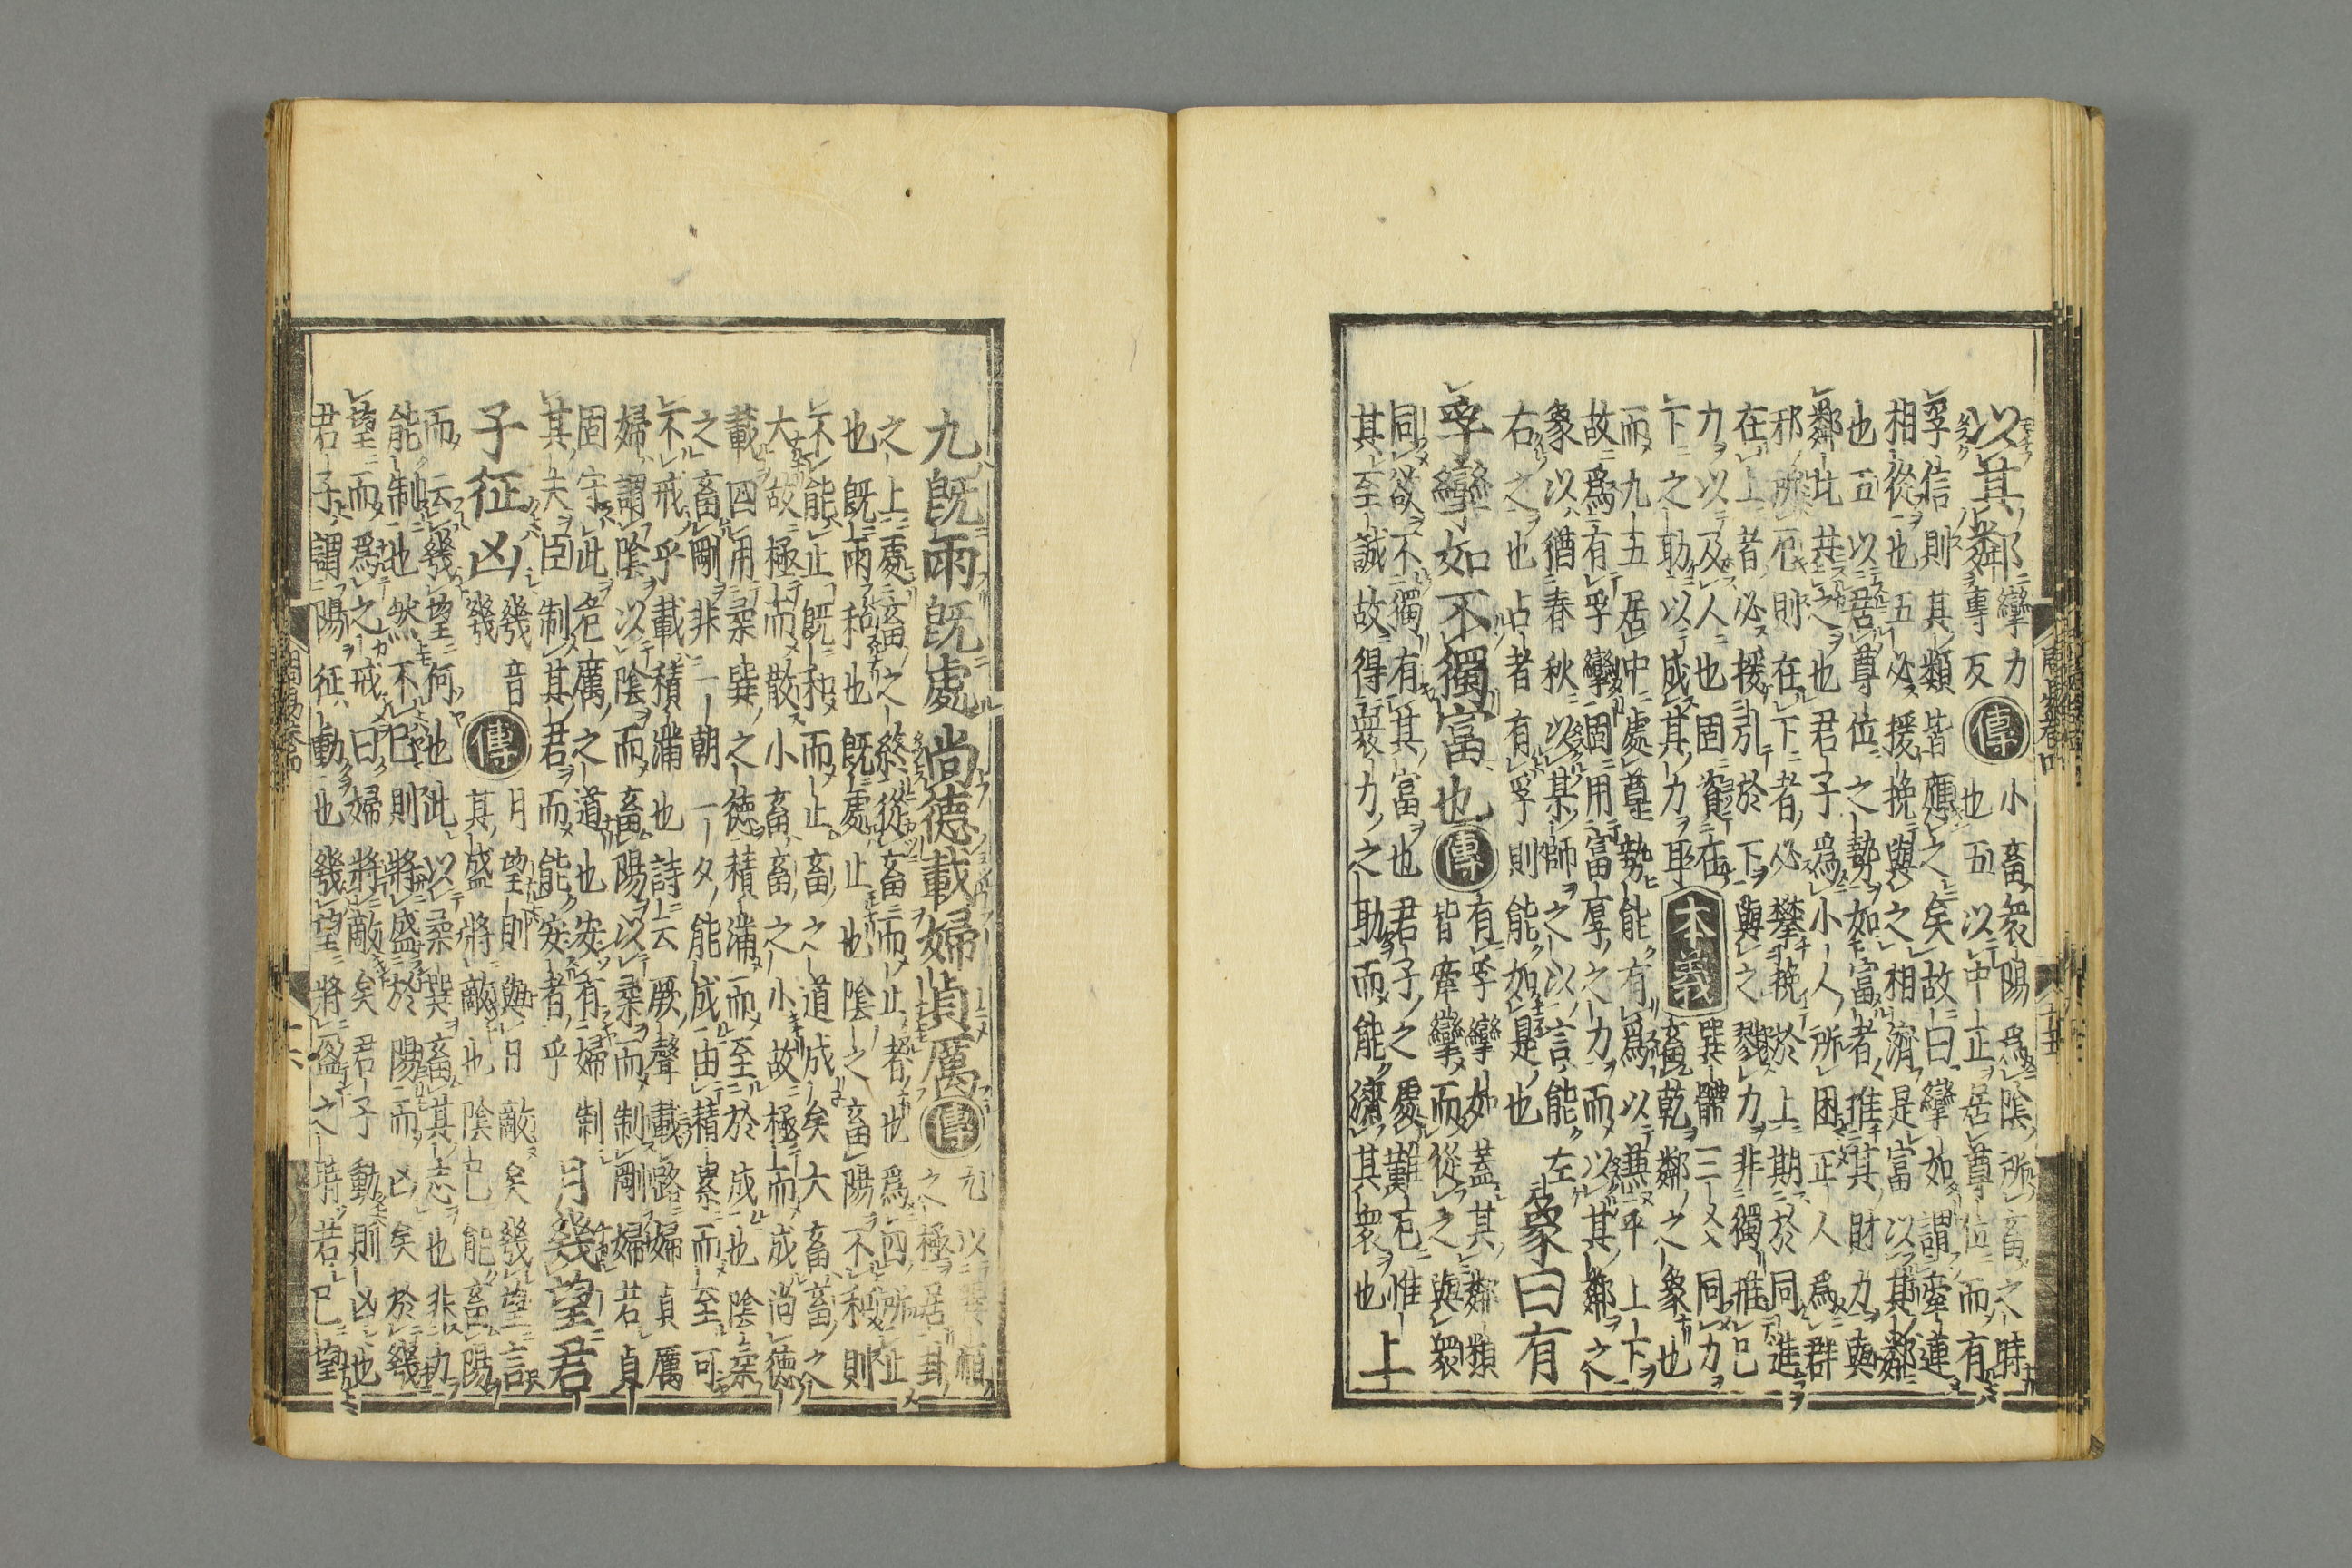 以其鄰攣力專反傳小畜衆陽爲陰所畜之時也五以中正居尊位而有
孚信則其類皆應之矣故曰攣如謂牽連
相從也五必援挽與之相濟是富以其鄰
也五以居尊位之勢如富者推其財力與
鄰比共之也君子爲小人所困正人爲群
邪所厄則在下者必攀挽於上期於同進
在上者必援引於下與之戮力非獨推己
力以及人也固資在
下之助以成其力耳本義巽體三爻同力畜乾鄰之象也
而九五居中處尊勢能有爲以兼乎上下
故爲有孚攣固用富厚之力而以其鄰之
象以猶春秋以某師之以言能左
右之也占者有孚則能如是也象曰有
孚攣如不獨富也傳有孚攣如蓋其鄰類皆牽攣而從之與衆
同欲不獨有其富也君子之處難厄惟
其至誠故得衆力之助而能濟其衆也上
九既雨既處尚德載婦貞厲傳九以巽順之極居卦
之上處畜之終從畜而止者也爲四所止
也既雨和也既處止也陰之畜陽不和則
不能止既和而止畜之道成矣大畜畜之
大故極而散小畜畜之小故極而成尚德
載四用柔巽之德積滿而至於成也陰柔
之畜剛非一朝一夕能成由積累而至可
不戒乎載積滿也詩云厥聲載路婦貞厲
婦謂陰以陰而畜陽以柔而制剛婦若貞
固守此危厲之道也安有婦制
其夫臣制其君而能安者乎月幾望君
子征凶幾音幾傳月望則與日敵矣幾望言其盛將敵也陰已能畜陽
而云幾望何也此以柔巽畜其志也非力
能制也然不已則將盛於陽而凶矣於幾
望而爲之戒曰婦將敵矣君子動則凶也
君子謂陽征動也幾望將盈之時若已望